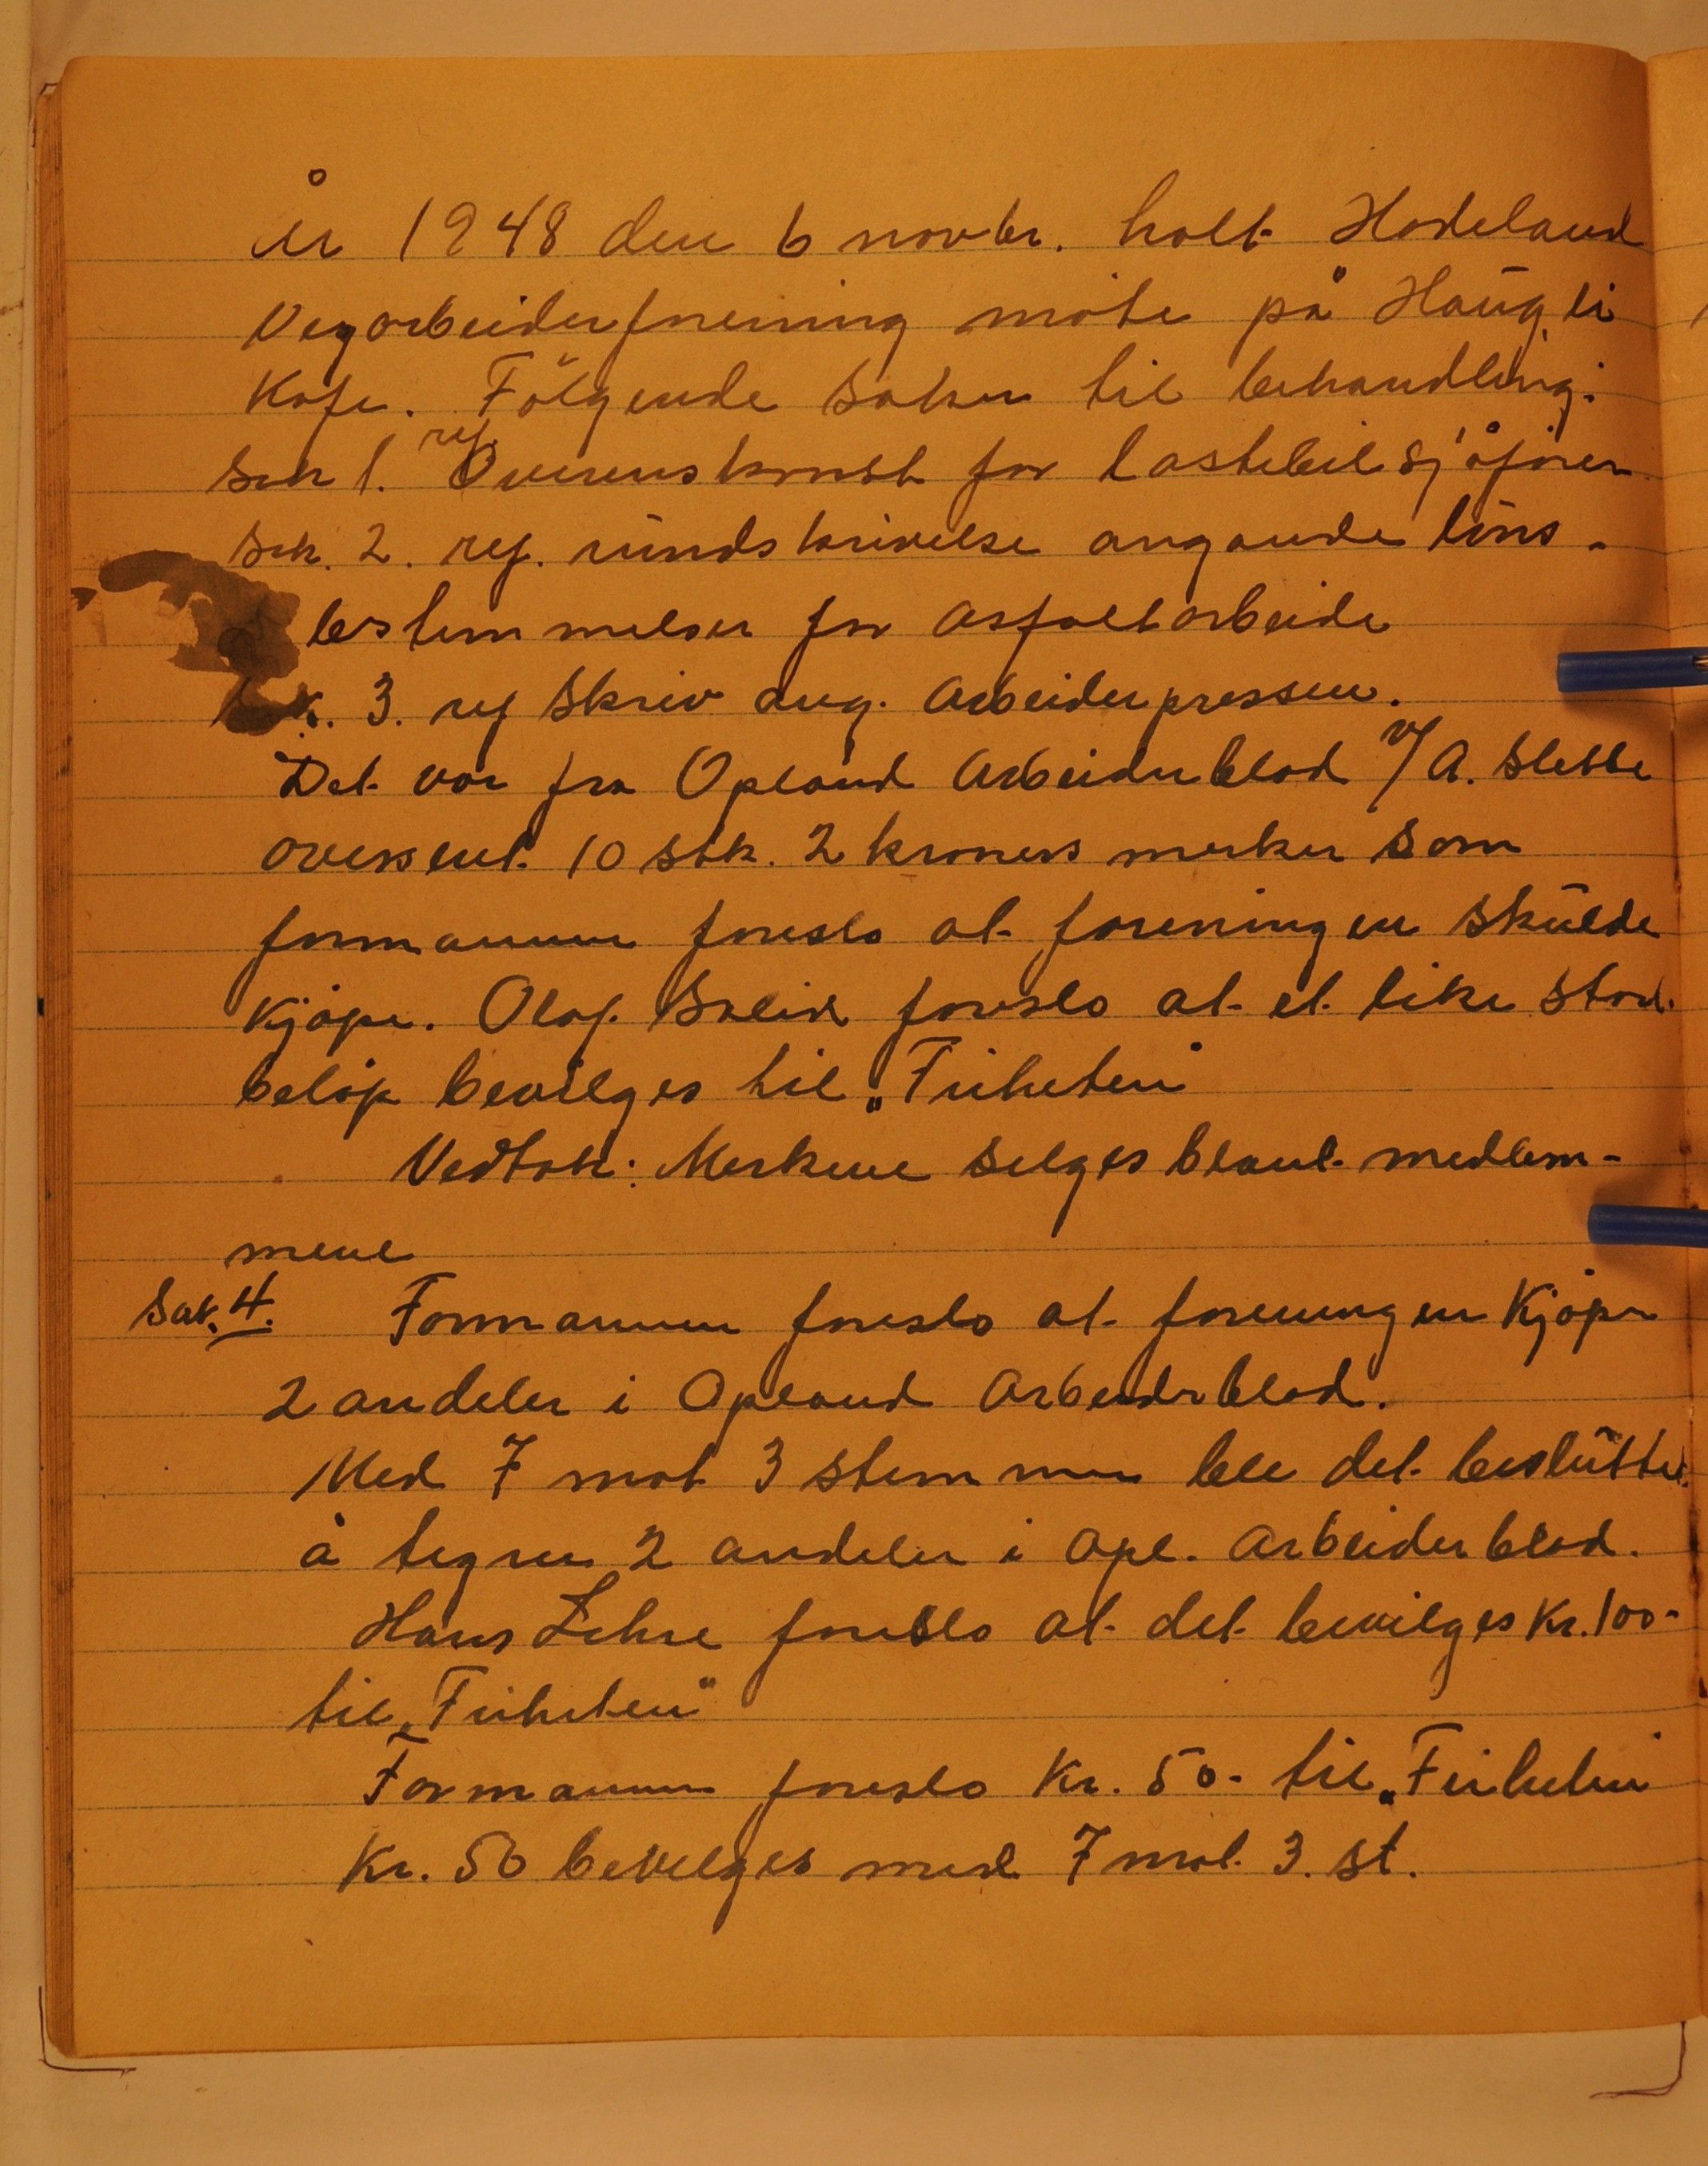 År 1948 den 6 novbr. holt Hadeland
Vegarbeiderforening möte på Haugli
Kafe. Fölgende saker til behandling.
Sak 1. ref. Overenskomst for lastebilsjåförer
Sak. 2. ref. rundskrivelse angående löns-
bestemmelser for asfaltarbeide
Sak. 3. ref Skriv ang. Arbeiderpressen.
Det var fra Opland Arbeiderblad v/ A. Slette
oversent 10 stk. 2 kroners merker som
formannen foreslo at foreningen skulde
kjöpe. Olaf foreslo at et like stort
belöp bevilges til „Friheten"
Vedtak: Merkene selges blant medlem-
mene
Sak. 4. Formannen foreslo at foreningen Kjöper
2 andeler i Opland Arbeiderblad.
Med 7 mot 3 stemmer ble det besluttet
å tegne 2 andeler i Opl. Arbeiderblad.
Hans Lehre foreslo at det bevilges Kr. 100-
til „Friheten"
Formannen foreslo Kr. 50- til „Friheten
Kr. 50 bevilges med 7 mot 3. st.